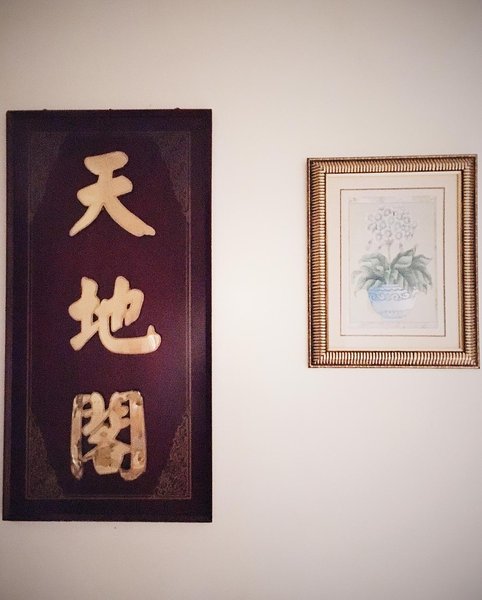 天地閣